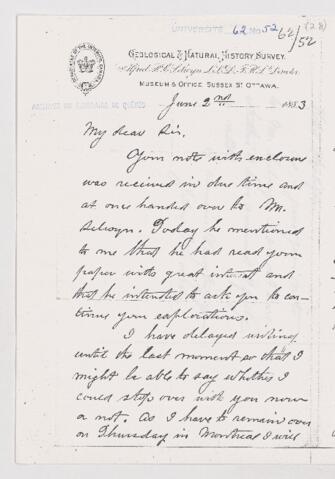 UNIVERSITÉ
62 No 52
62/52
(28)
GEOLOGICAL & NATURAL HISTORY SURVEY.
Alfred R. C. Selwyn L.L.D., F.R.S. Director.
MUSEUM & OFFICE SUSSEX ST OTTAWA.
June 2nd 1883
My dear Sir,
Your note with enclosure
was received in due time and
at once handed over to Mr.
Selwyn. Today he mentioned
to me that he had read your
paper with great interest and
that he intended to ask you to con-
tinue your explorations.
I have delayed writing
until the last moment so that I
might be able to say whether I
could stop over with you now
or not. As I have to remain over
on Thursday in Montreal I will